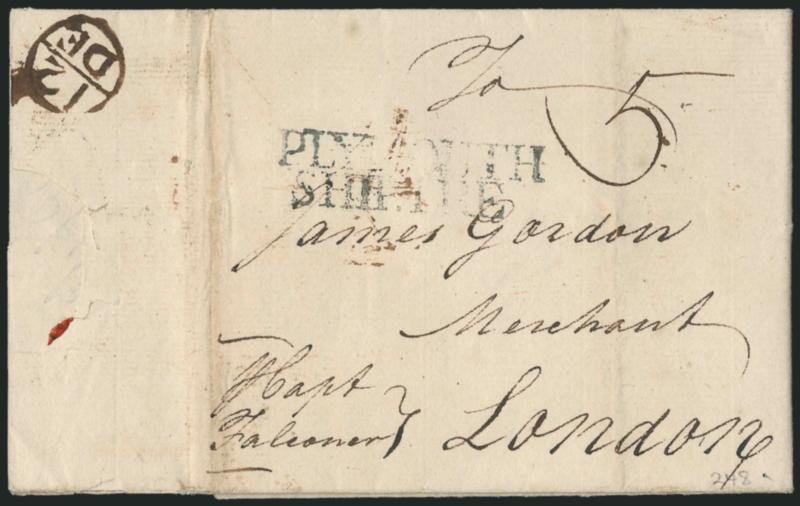 DE
12
To 5
PLYMOUTH
SHIP-LRE
James Gordon
Merchant
Capt
Falconer
London
248